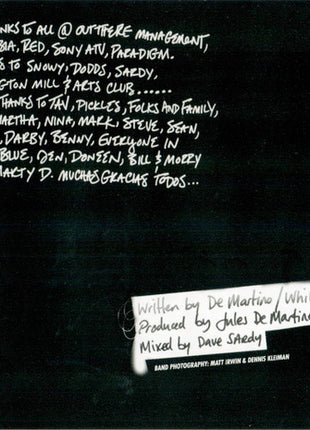 NKS TO ALL @ OUTTHERE MANAGEMENT,
BIA, RED, SONY ATV, PARADIGM.
S TO SNOWY, DODDS, SARDY,
NGTON MILL & ARTS CLUB......
THANKS TO TAV, PICKLES, FOLKS AND FAMILY,
ARTHA, NINA, MARK, STEVE, SEAN,
, DARBY, BENNY, EVERYONE IN
BLUE, DEN, DONEEN, BILL & MORRY
MARTY D. MUCHAS GRACIAS TODOS...
Written by De Martino/Whi
Produced by Jules De Martino
Mixed by Dave SArdy
BAND PHOTOGRAPHY: MATT IRWIN & DENNIS KLEIMAN